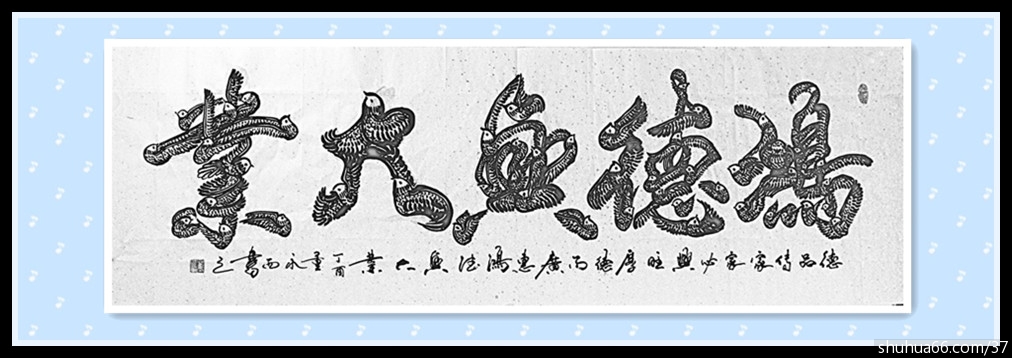 鴻德興大業
德品传家家必興旺厚德而廣惠鴻德興大業丁酉永書之
shuhua66.com/37